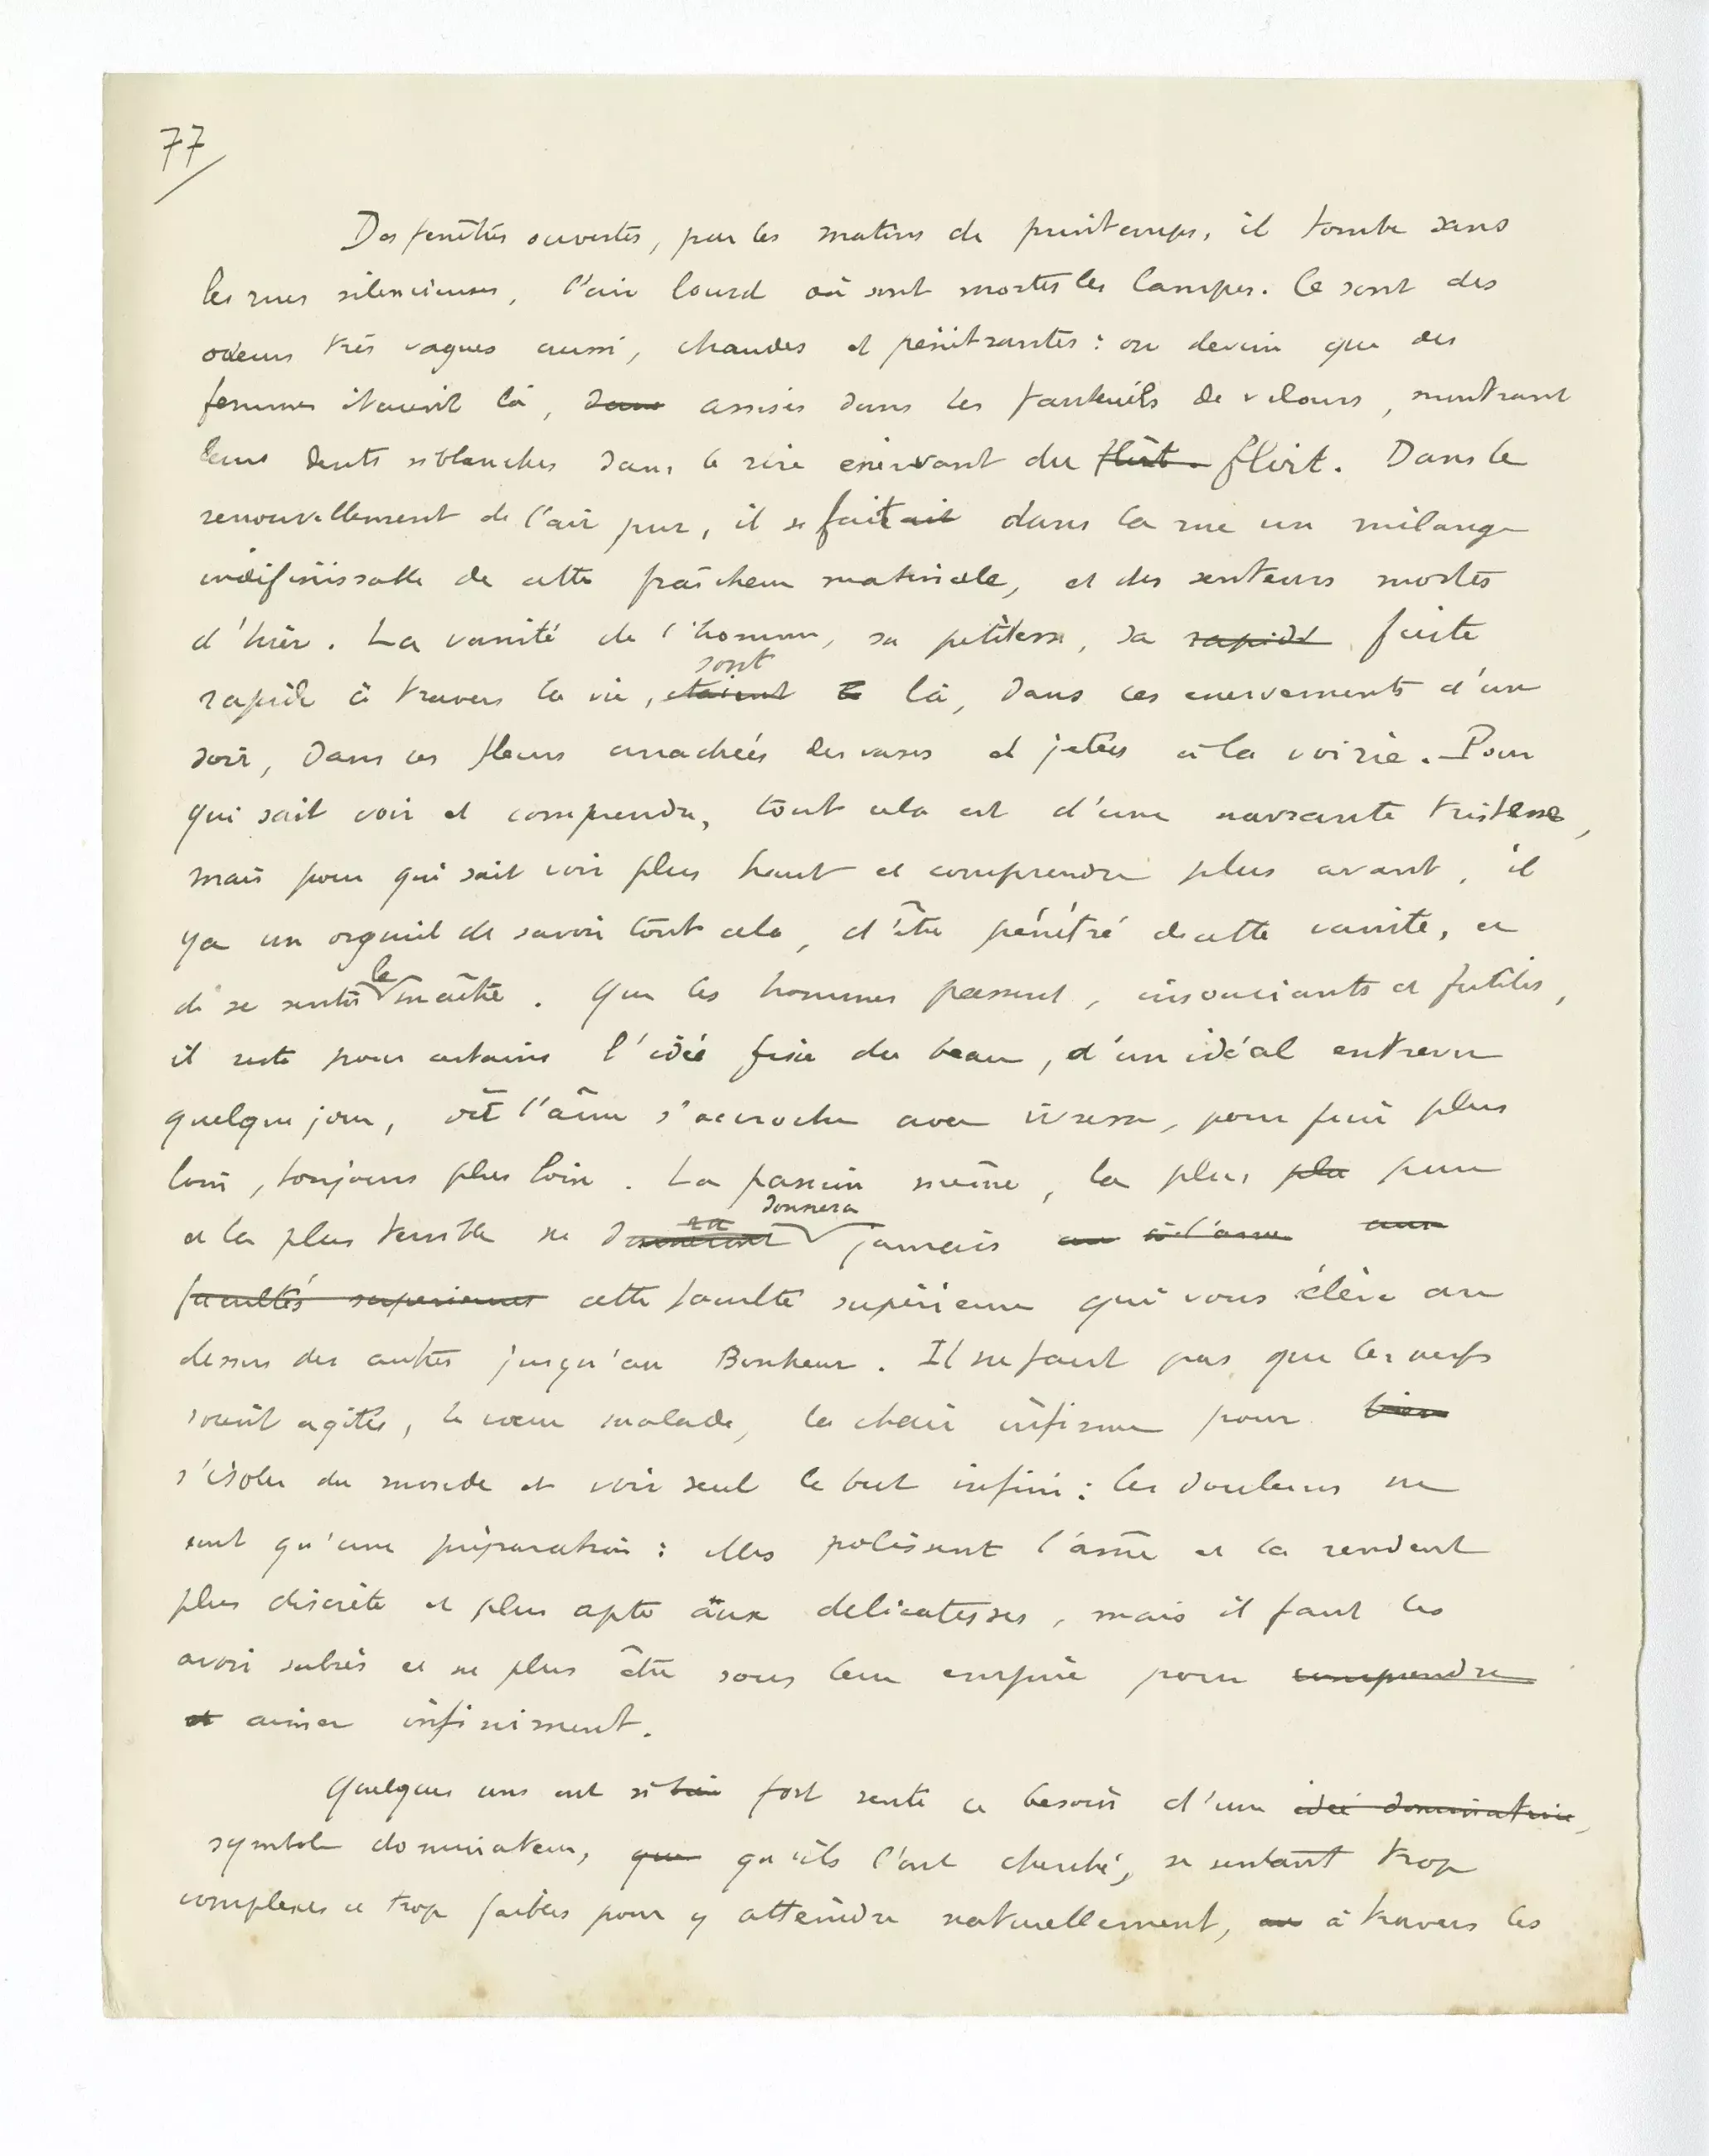 77
Des fenêtres ouvertes, par les matins de printemps, il tombe dans
les rues silencieuses, l'air lourd où sont mortes les lampes. Ce sont des
odeurs très vagues aussi, chaudes et pénétrantes : on devine que des
femmes étaient là, dans assises dans les fauteuils de velours, montrant
leurs dents si blanches dans le rire énervant du flirt. flirt. Dans le
renouvellement de l'air pur, il se faitait dans la rue un mélange
indéfinissable de cette fraîcheur matinale, et des senteurs mortes
d'hier. La vanité de l'homme, sa petitesse, sa rapide fuite
sont
rapide à travers la vie, étaient là, dans ces enervements d'un
soir, dans ces fleurs arrachées des vases et jetées à la voirie. Pour
qui sait voir et comprendre, tout cela est d'une navrante tristesse,
mais pour qui sait voir plus haut et comprendre plus avant, il
y a un orgueil de savoir tout cela, d'être pénétré de cette vanité, et
le
de se sentir maître. Que les hommes passent, insouciants et futiles,
il reste pour certains l'idée fixe du beau, d'un idéal entrevu
quelque jour, où l'âme s'accroche avec ivresse, pour fuir plus
loin, toujours plus loin. La passion même, la plus plu pure
ra donnera
et la plus terrible ne donneront jamais au à l'ame aux
facultés superieures cette faculté supérieure qui vous élève au
dessus des autres jusqu'au Bonheur. Il ne faut pas que les nerfs
soient agités, le cœur malade, la chair infirme pour bien
s'isoler du monde et voir seul le but infini : les douleurs ne
sont qu'une préparation : elles polissent l'âme et la rendent
plus discrète et plus apte aux delicatesses, mais il faut les
avoir subies et ne plus être sous leur empire pour comprendre
et aimer infiniment.
Quelques uns ont si bien fort senti ce besoin d'une idée dominatrice,
symbole dominateur, que qu'ils l'ont cherché, se sentant trop
complexes et trop faibles pour y atteindre naturellement, au à travers les